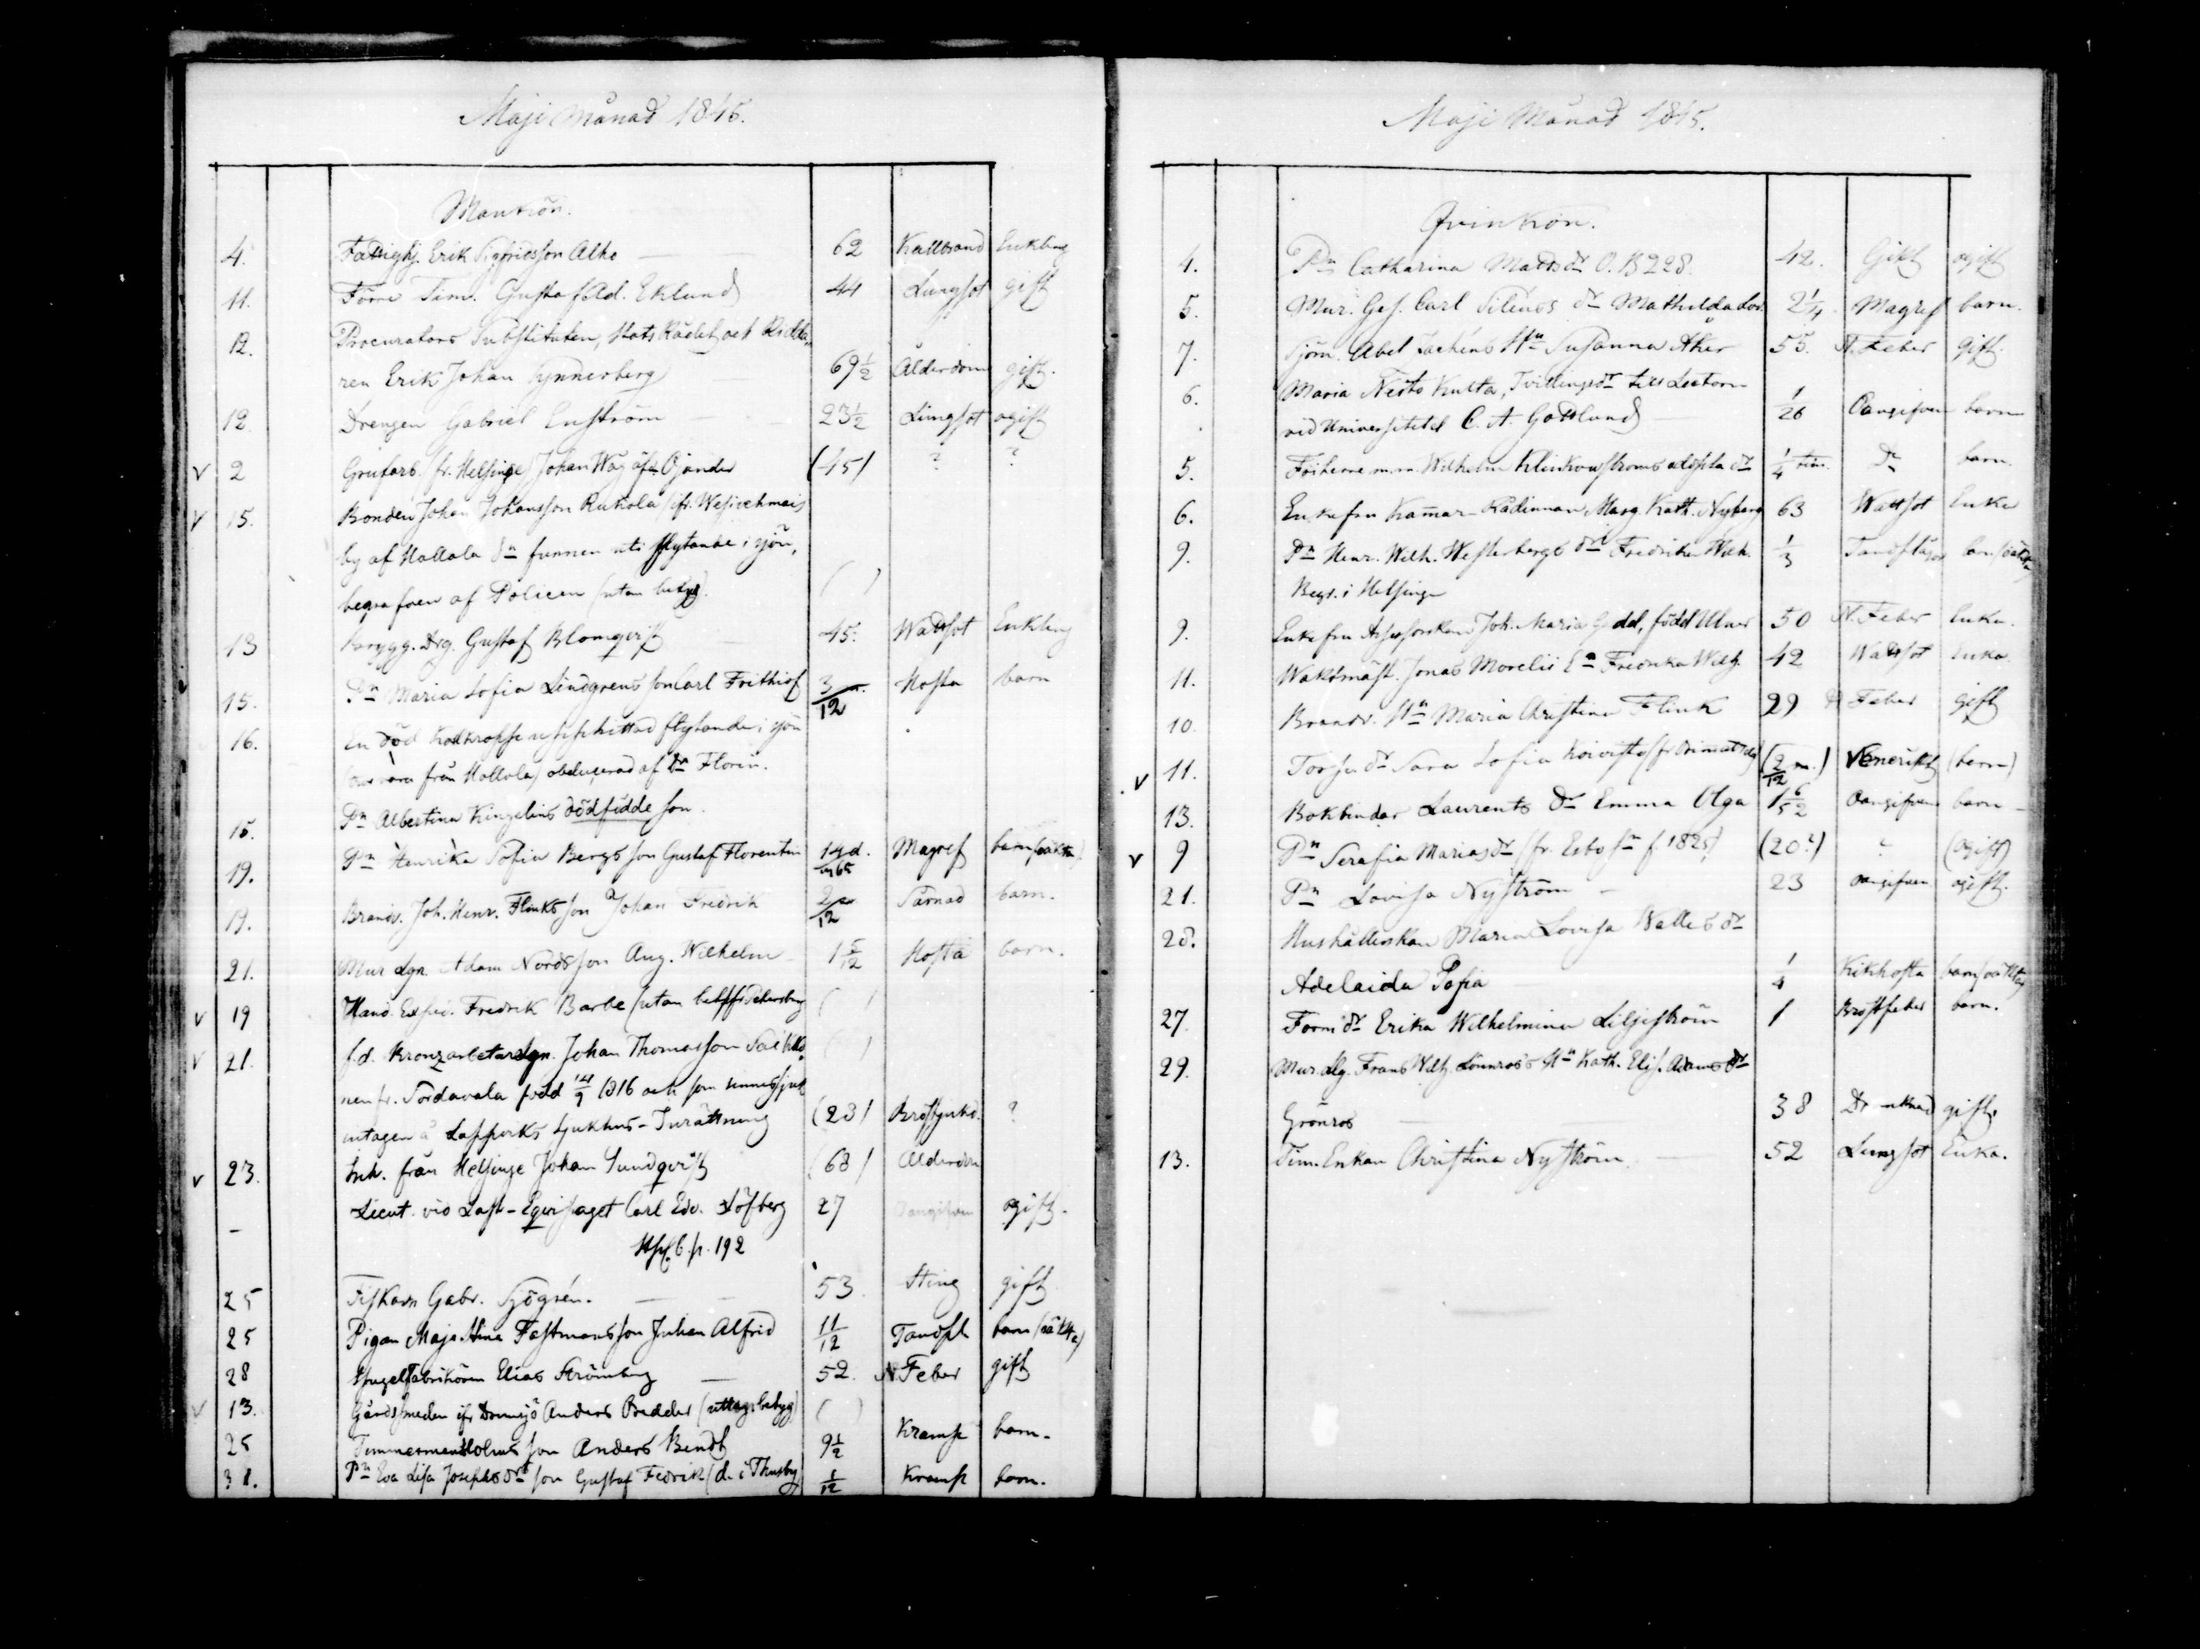 Maji Månad 1845.
Mankön.
4. Fattighj. Erik Sigfridsson Alho 62 Kallbrand Enkling
11. Förre Tim. Gustaf Ad. Eklund 44 Lungsot gift
12. Procurators Substituten, Stats Rådet och Ridda-
ren Erik Johan Gynnerberg 69½ Ålderdom gift.
12 Drengen Gabriel Enström 23½ Lungsot ogift
v 2 (fr. Helsinge) Johan Ojander (45) ? ?
v 15. Bonden Johan Johansson Rukola ifr.
by af Hollola Sn funnen uti flytande i sjön,
begrafven af Policen (utan betyg). ( )
13 Drg. Gustaf Blomqvist 45. Wattsot Enkling
15. Pn Maria Sofia Lindgrens son Carl Frithiof 3/12 m. Hosta barn
16. En död flytande i sjön
från Hollola) obducerad af Dr Florin.
15. Pn Albertina Kingelins dödfödde son.
19. Pn Henrika Sofia Bergs son Gustaf Florentin 14 d. Magref barn (oäkta)
19. Brandv. Joh. Henr. Flinks son Johan Fredrik 2/12 Sårnad barn.
21. Mur Lgn Adam Nords son Aug. Wilhelm 1 5/12 Hosta barn.
v 19 Hand. Exped. Fredrik Barbe (utan Petersburg ( )
v 21. f.d. Johan Thomasson
nen fr. Sordavala född 14/9 1816 och som sinnessjuk
intagen å Lappviks Sjukhus-Inrättning (28) Bröstsjukd. ?
v 23. Inh. från Helsinge Johan Sundqvist (68) Ålderdom
- Lieut. vid Last-Equipaget Carl Edv. Löfberg 27 Oangifven ogift.
p. 192
25 Fiskarn Gabr. Sjögrén. 53 Sting gift
25 Pigan Maja Stina Fastmans son Johan Alfrid 11/12 Tandsl. barn (oäkta)
28 Spegelfabrikören Elias Strömberg 52. N. Feber gift
v 13. Gårdssmeden ifr Anders Bredder ( )
25 Timmerman Holms son Anders Bendt 9½ Kramp barn.
31. Pn Eva Lisa Josephsdrs son Gustaf Fedrik (d. i Thusby 1/12 Kramp barn.
Maji Månad 1845.
Qvinkön.
4. Pn Catharina Mattsdr O.B 228. 42. Gikt ogift
5. Mur. Ges. Carl Silenös dr Mathilda Lov. 2¼ Magref barn.
7. Sjöm. Abel Hn Susanna Åker 55. N. Feber gift.
6. Maria Kulta, Tvillingsdr till Lectorn
vid Universitetet C. A. Gottlund 1/26 Oangifven barn
5. Friherre m.m. Wilhelm Klinkowströms dr ¼ tim. Do barn.
6. Enkefru Kamar-Rådinnan Marg. Kath. Nyberg 63 Wattsot Enka
9. Pn Henr. Wilh. Westerbergs dr Fredrika Wilh. ⅓ Tandslag barn (oäkta)
Begr. i Helsinge
9. Enkefru Assessorskan Joh. Maria Gadd, född 50 N. Feber Enka.
11. Waktmäst. Jonas Morelii Ea Fredrika Wilh. 42 Wattsot Enka
10. Brandv. Hn Maria Christina Flink 29 N Feber gift
v 11. Torp. dr Sara Sofia Koivisto (2/12 m.) Venerisk (barn)
13. Bokbindar Laurents dr Emma Olga 1 6/52 Oangifven barn
v 9 Pn Serafia Mariasdr (fr. Esbo sn f. 1825) (20?) ? (ogift)
21. Pn Lovisa Nyström 23 Oangifven ogift.
28. Hushållerskan Maria Lovisa Walles dr
Adelaida Sofia ¼ Kikhosta barn (oäkta)
27. Form. dr Erika Wilhelmina Liljeström 1 Bröstfeber barn.
29. Mur. Lg. Frans Wilh. Lönnroos Hn Kath. Elis. Adamsdr
Grönros 38 Drunknad gift.
13. Tim. Enkan Christina Nyström 52 Lungsot Enka.